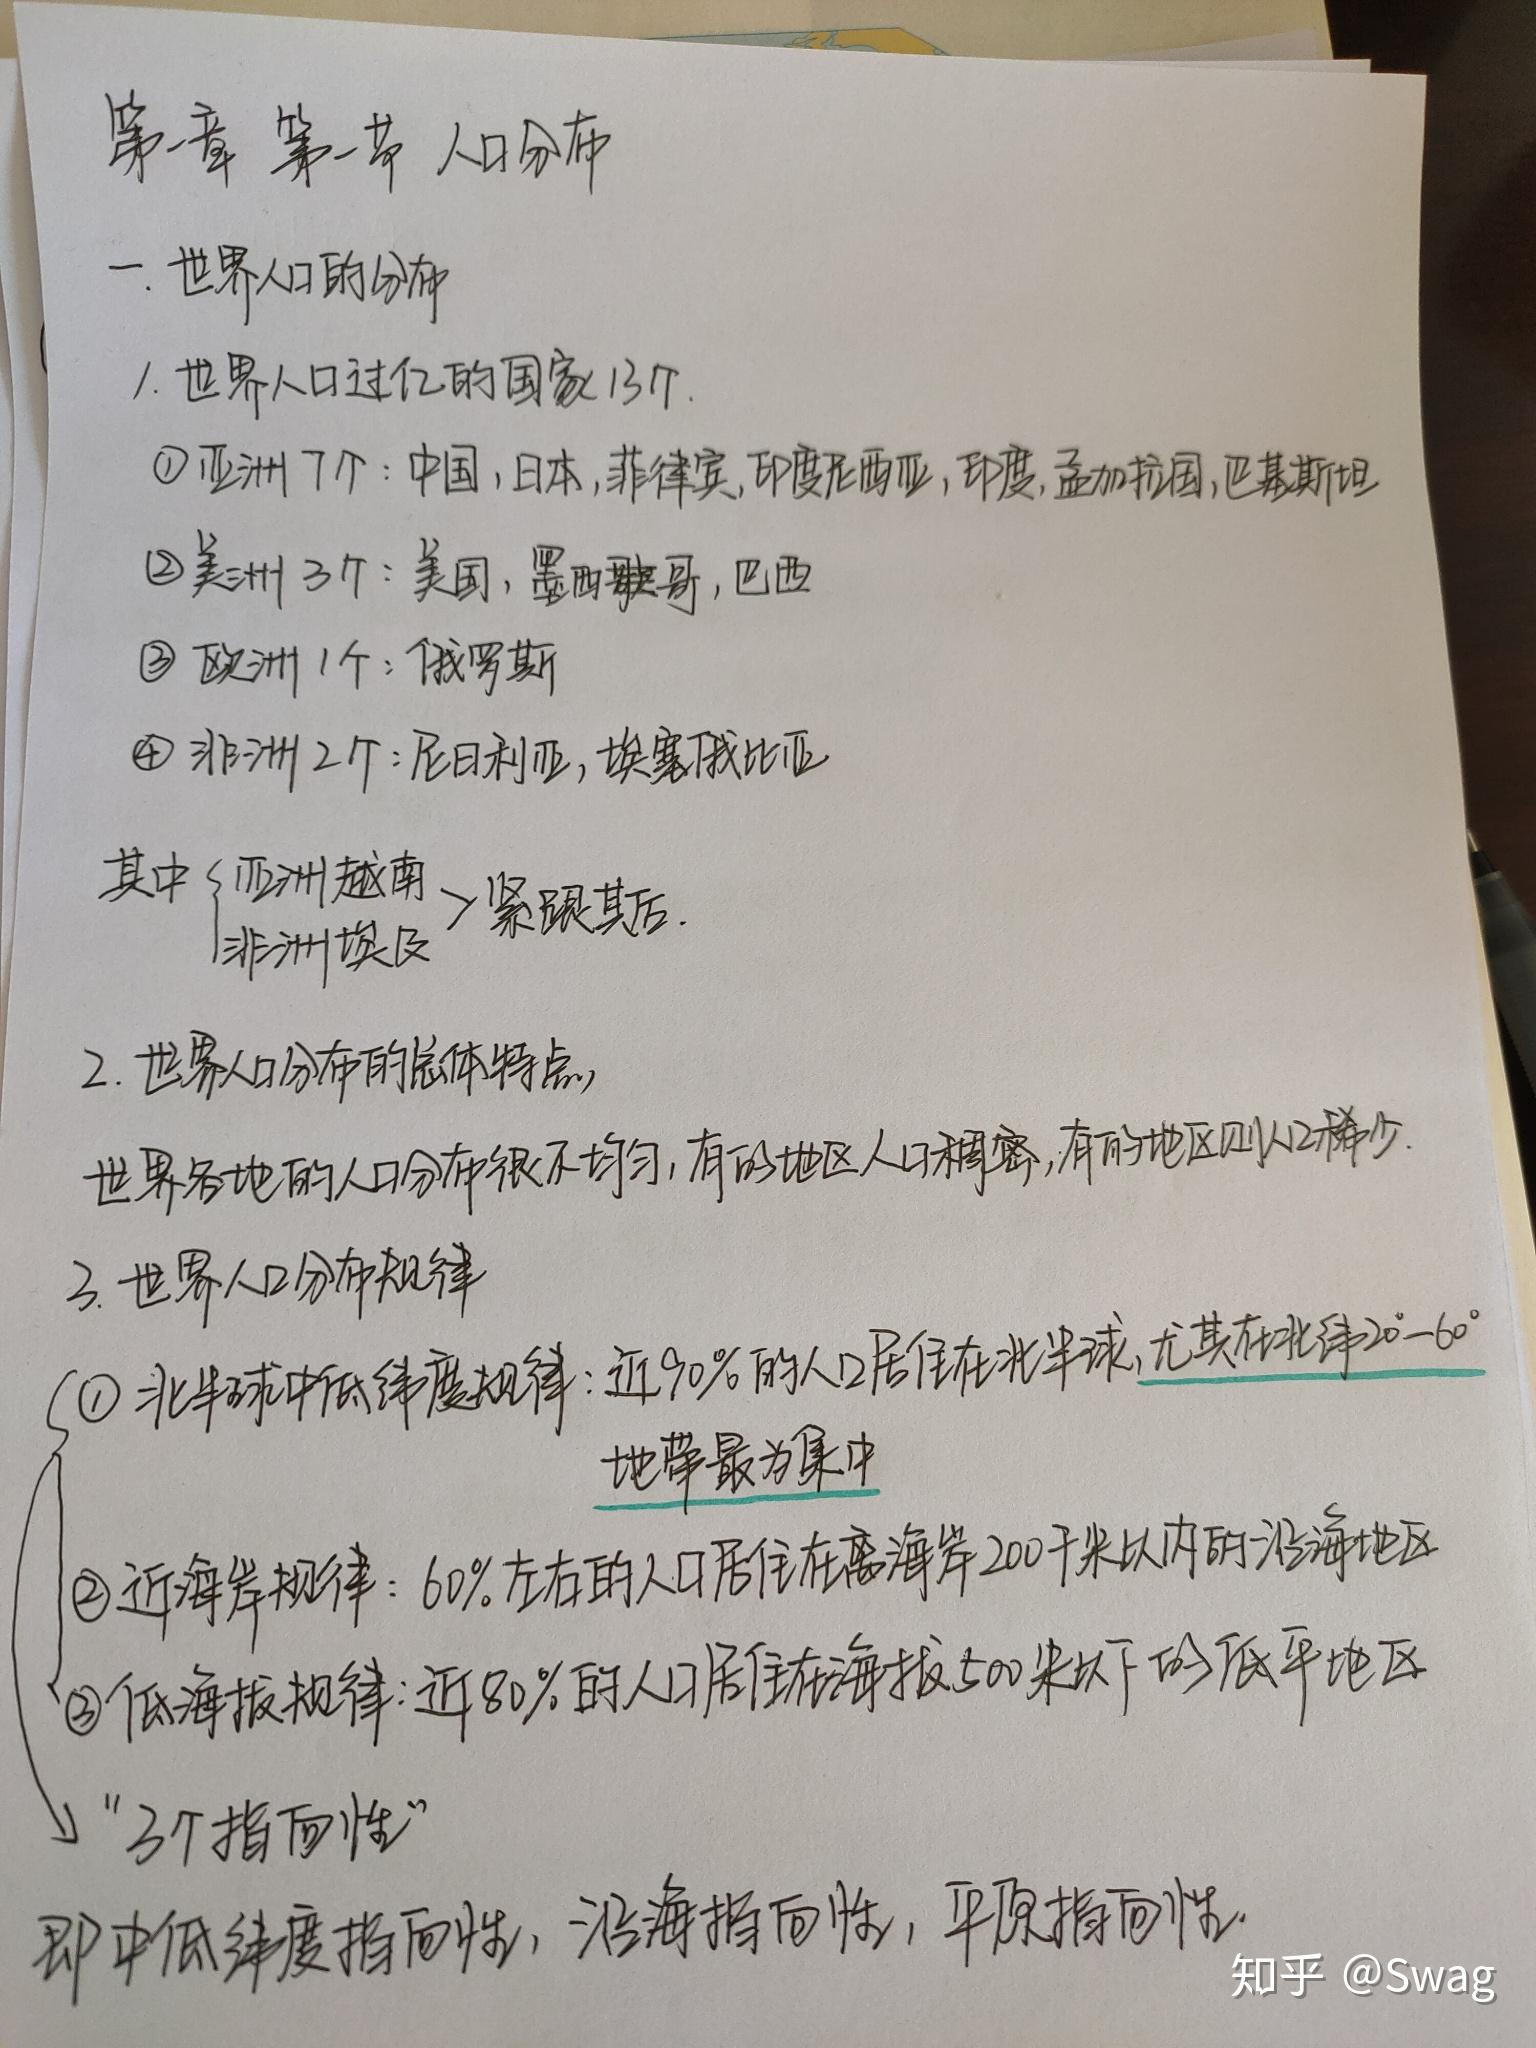 第一章 第一节 人口分布
一. 世界人口的分布
1. 世界人口过亿的国家13个.
①亚洲7个：中国，日本，菲律宾，印度尼西亚，印度，孟加拉国，巴基斯坦
②美洲3个：美国，墨西哥，巴西
③欧洲1个：俄罗斯
④非洲2个：尼日利亚，埃塞俄比亚
其中{亚洲越南
非洲埃及>紧跟其后.
2. 世界人口分布的总体特点，
世界各地的人口分布很不均匀，有的地区人口稠密，有的地区则人口稀少.
3. 世界人口分布规律
①北半球中低纬度规律：近90%的人口居住在北半球，尤其在北纬20°-60°
地带最为集中
②近海岸规律：60%左右的人口居住在离海岸200千米以内的沿海地区
③低海拔规律：近80%的人口居住在海拔500米以下的低平地区
"3个指向性"
即中低纬度指向性，沿海指向性，平原指向性.
知乎 @Swag